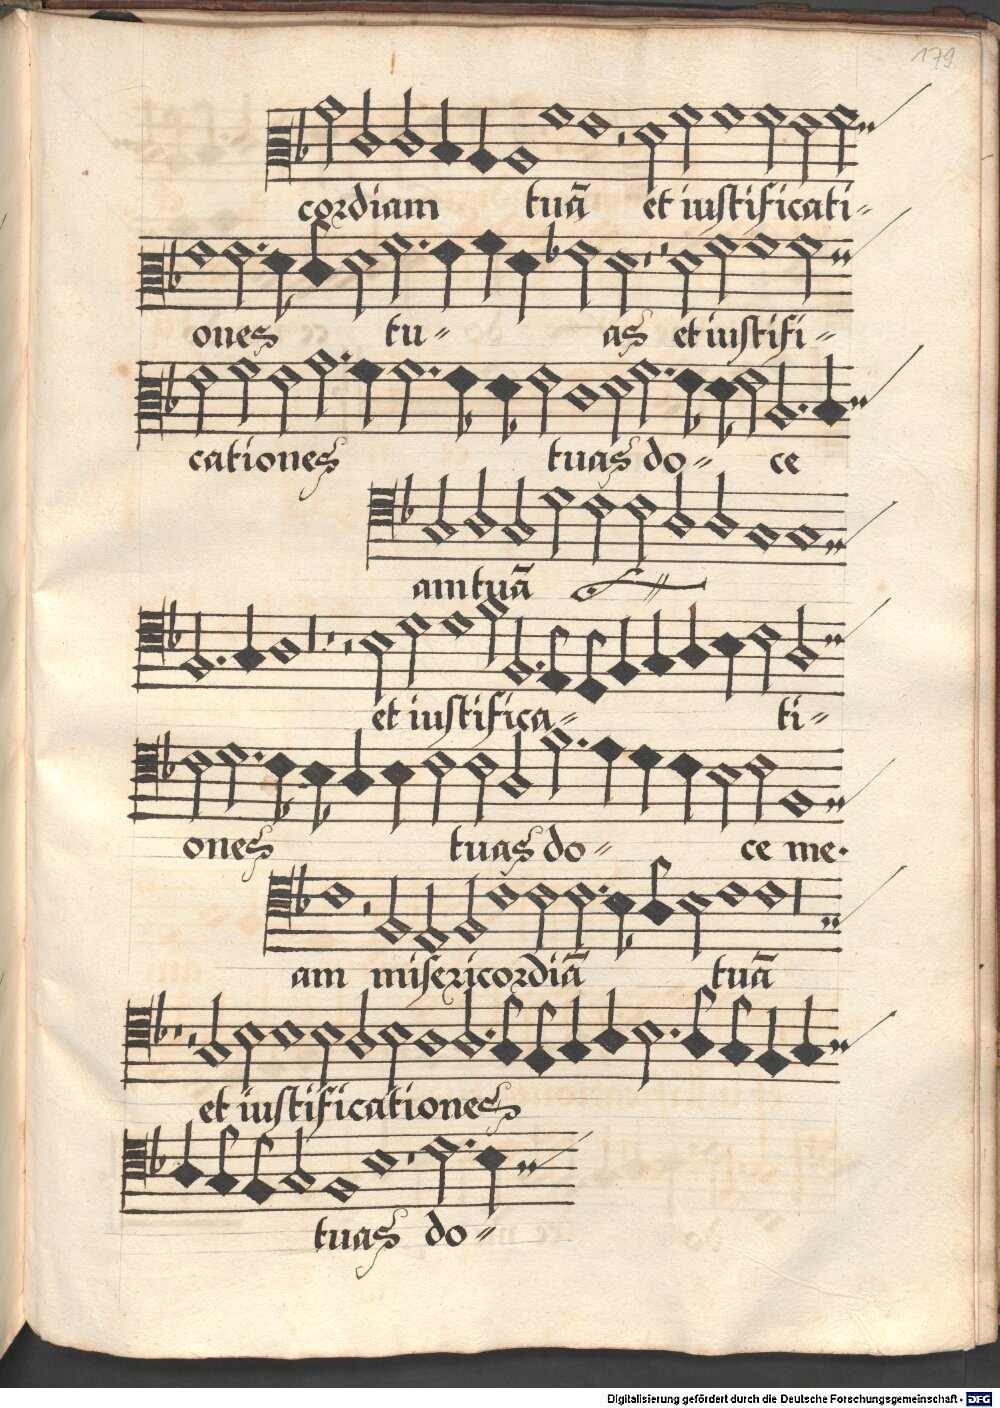 179
cordiam tuā et iustificati〃
ones tu〃 as et iustifi〃
cationes tuas do〃 ce
am tuā
et iustifica〃 ti〃
ones tuas do〃 ce me.
am misericordiā tuā
et iustificationes
tuas do〃
Digitalisierung gefördert durch die Deutsche Forschungsgemeinschaft - DFG